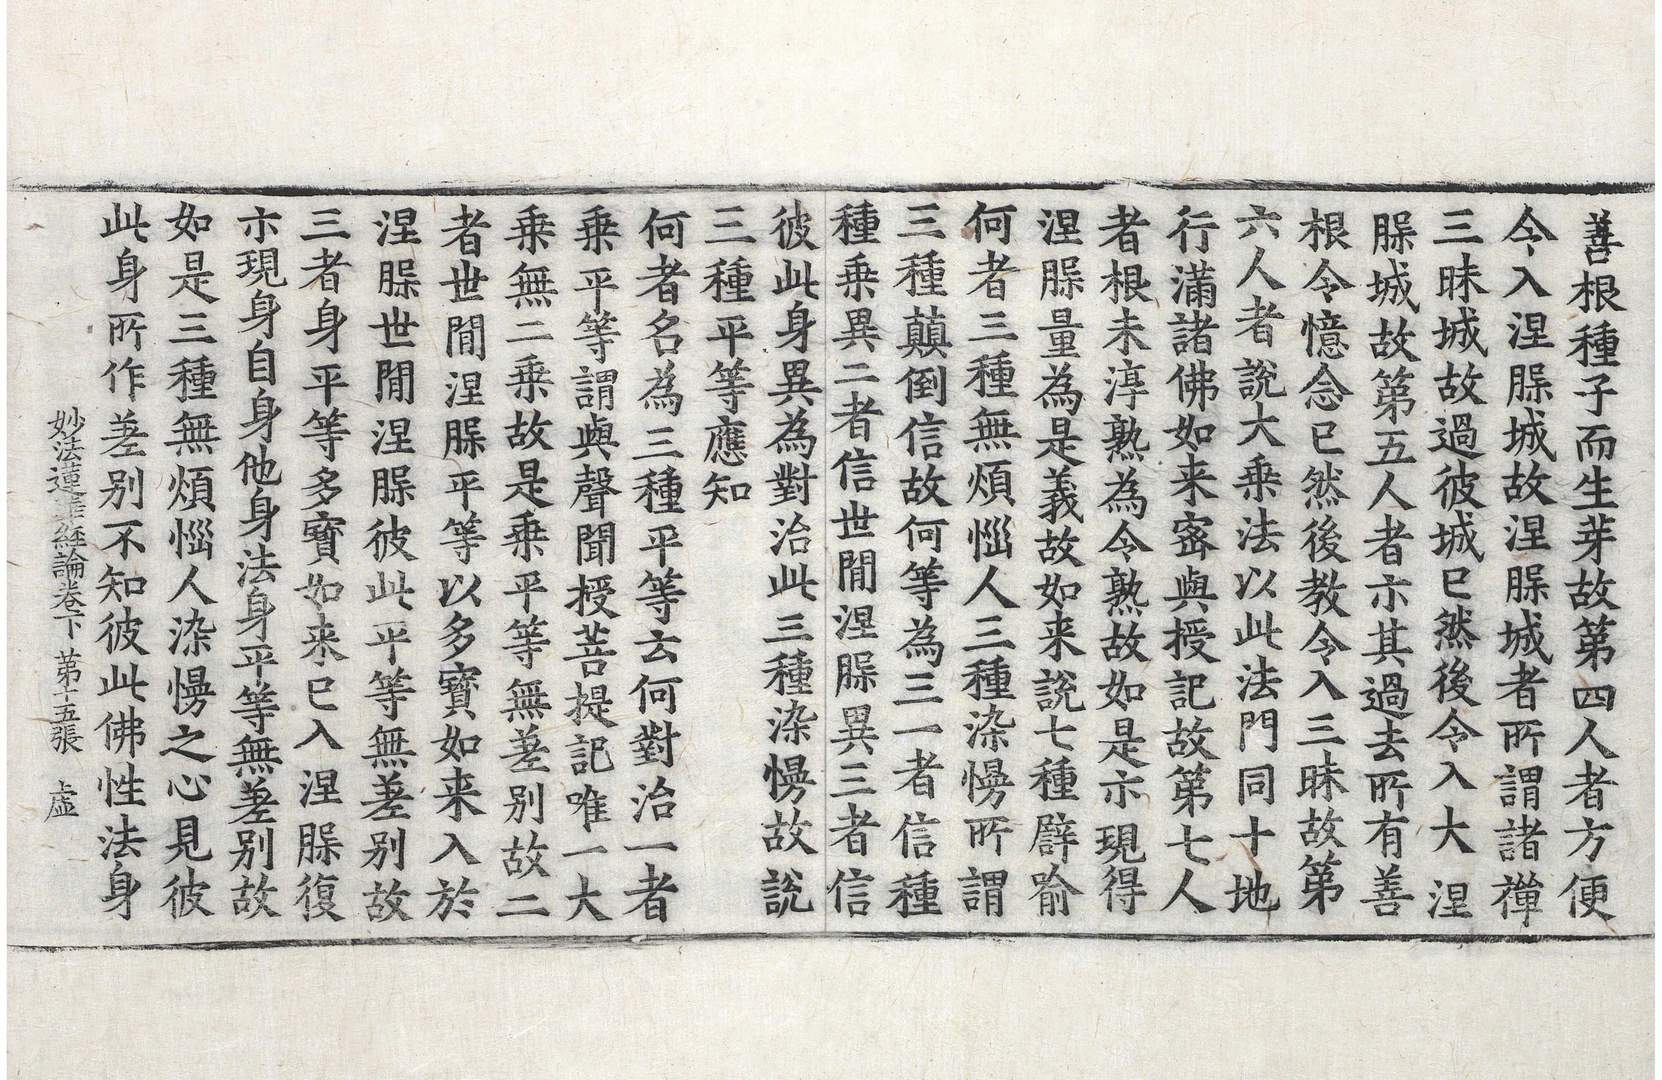 善根種子而生芽故第四人者方便
令入涅槃城故涅槃城者所謂諸禪
三昧城故過彼城已然後令入大涅
槃城故第五人者示其過去所有善
根令憶念已然後教令入三昧故第
六人者說大乗法以此法門同十地
行滿諸佛如来宻與授記故第七人
者根未淳熟為令熟故如是示現得
涅槃量為是義故如来說七種譬喻
何者三種無煩惱人三種染慢所謂
三種顛倒信故何等為三一者信種
種乗異二者信世間涅槃異三者信
彼此身異為對治此三種染慢故說
三種平等應知
何者名為三種平等云何對治一者
乗平等謂與聲聞授菩提記唯一大
乗無二乗故是乗平等無差别故二
者世間涅槃平等以多寳如来入於
涅槃世間涅槃彼此平等無差别故
三者身平等多寳如来已入涅槃復
示現身自身他身法身平等無差别故
如是三種無煩惱人染慢之心見彼
此身所作差别不知彼此佛性法身
妙法蓮華經論卷下 第十五張 虛